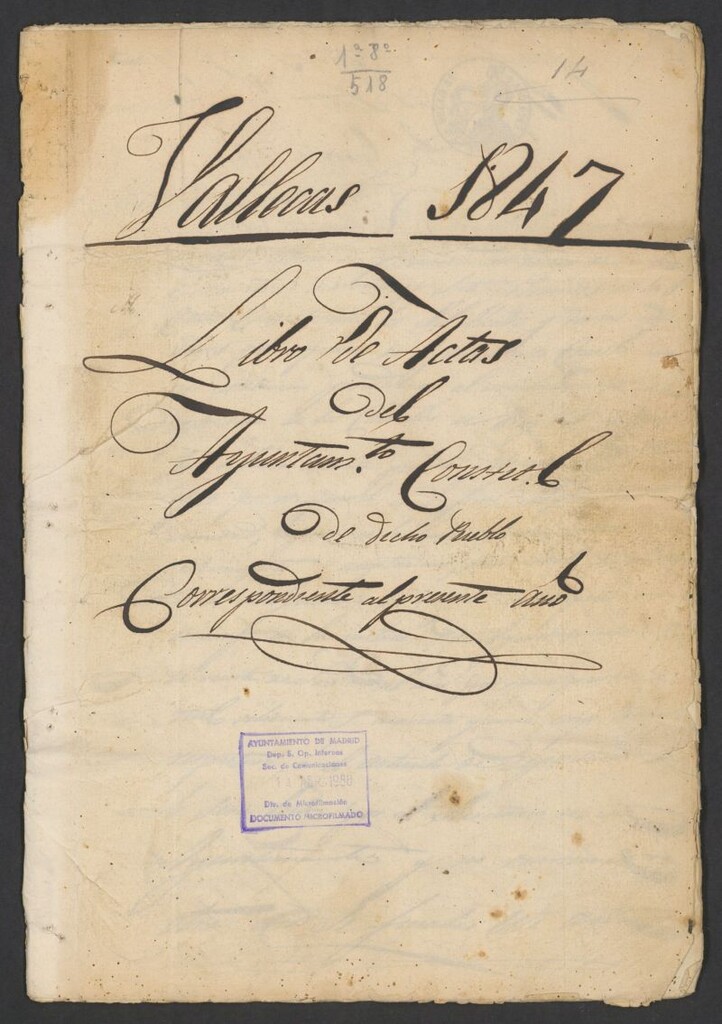 1ª 8ª
518
14
Vallecas 1847
Libro de Actas
del
Ayuntam.to Constit.l
de dicho Pueblo
Correspondiente al presente año
AYUNTAMIENTO DE MADRID
Dep. E. Op. Internos
Sec. de Comunicaciones
1988
Dto. de Microfilmación
DOCUMENTO MICROFILMADO